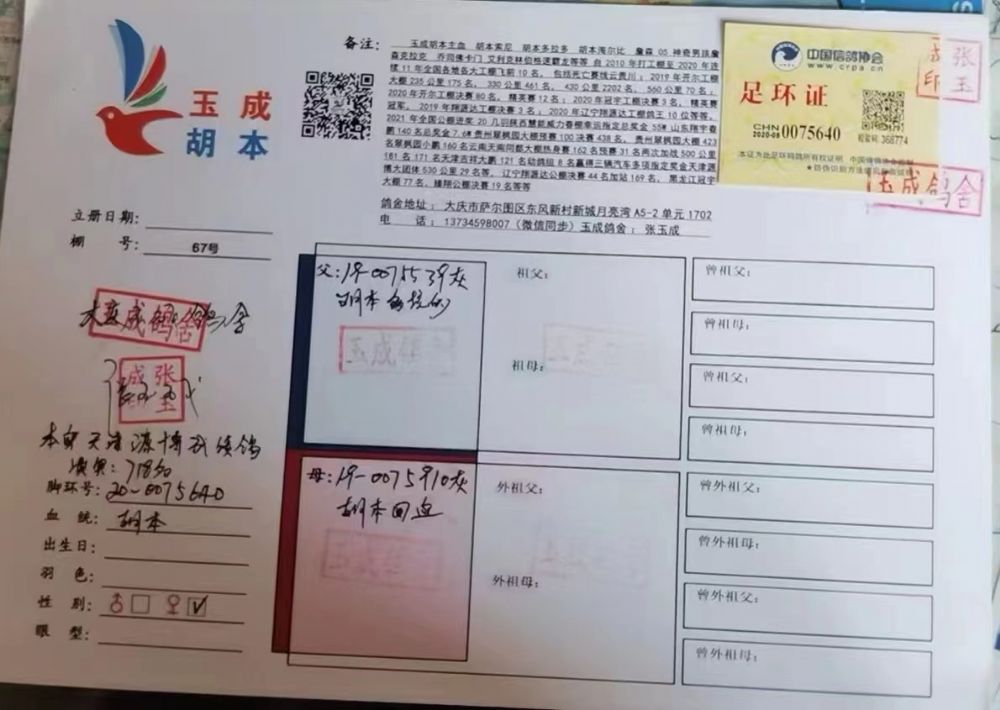 玉成
胡本
备注：
玉成胡本主血 胡本索尼 胡本多拉多 胡本海尔比 詹森 05 神奇男孩詹
森克拉克 乔司佛卡门 艾利克林伯格速霸龙等等 自 2010 年打工棚至 2020 年连
续 11 年全国各地各大工棚飞前 10 名， 包括死亡赛线云贵川； 2019 年开尔工
棚大棚 235 公里 175 名， 330 公里 461 名， 430 公里 2202 名， 560 公里 70 名；
2020 年开尔工棚决赛 80 名， 精英赛 12 名； 2020 年冠宇工棚决赛 3 名， 精英赛
冠军， 2019 年翔源达工棚决赛 3 名； 2020 年辽宁翔源达工棚鸽王 10 位等等，
2021 年全国公棚进奖 20 几羽陕西慧能威力春棚幸运指定总奖金 55W 山东翔宇春
鹏 140 名总奖金 7.6W 贵州翠枫园大棚预赛 100 决赛 438 名， 贵州翠枫园大棚 423
名翠枫园小鹏 160 名云南天南同都大棚热身赛 162 名预赛 31 名两次加站 500 公里
181 名 171 名天津吉祥大鹏 121 名幼鸽组 8 名赢得三辆汽车多项指定奖金天津源
博大团体 530 公里 29 名等， 辽宁翔源达公棚决赛 44 名加站 169 名， 黑龙江冠宇
大棚 77 名， 臻翔公棚决赛 19 名等等
鸽舍地址： 大庆市萨尔图区东风新村新城月亮湾 A5-2 单元 1702
电 话： 13734598007（微信同步）玉成鸽舍： 张玉成
中国信鸽协会
www.crpa.cn
足环证
CHN
2020-08 0075640
验证码: 368774
本证为此足环码鸽所有权证明 中国信鸽协会监制
玉成鸽舍
立册日期：
棚 号： 67号
玉成鸽舍
本身天津源博成绩鸽
脚环号：20-0075640
血 统：胡本
出生日：
羽 色：
性 别：♂□ ♀☑
眼 型：
父：19-0075539灰
祖父：
祖母：
母：19-0075910灰
胡本回血
外祖父：
外祖母：
曾祖父：
曾祖母：
曾祖父：
曾祖母：
曾外祖父：
曾外祖母：
曾外祖父：
曾外祖母：